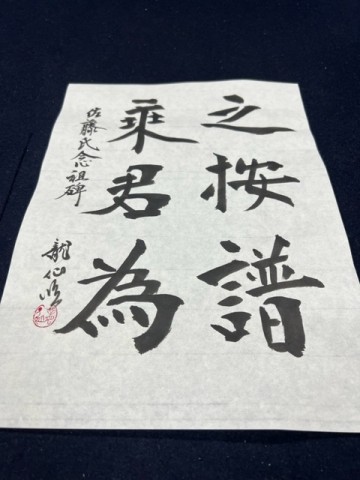 之按譜
乗君為
佐藤氏念祖碑
龍仙